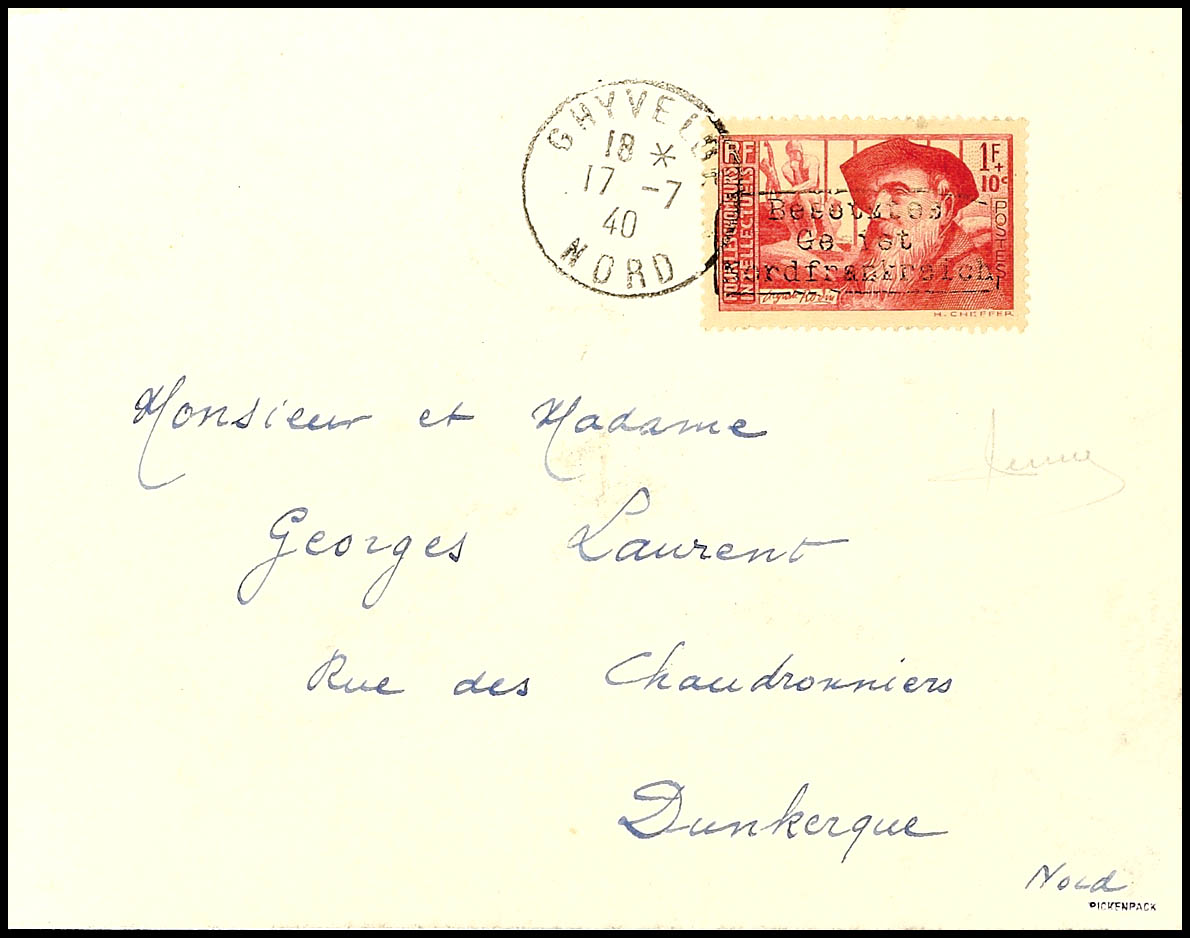 GHYVELDE
18 *
17 -7
40
NORD
RF
POUR LES CHOMEURS
INTELLECTUELS
1F+
10c
POSTES
Besetztes
Gebiet
Nordfrankreich
Auguste Rodin
H. CHEFFER
Monsieur et Madame
Georges Laurent
Rue des Chaudronniers
Dunkerque
Nord
PICKENPACK